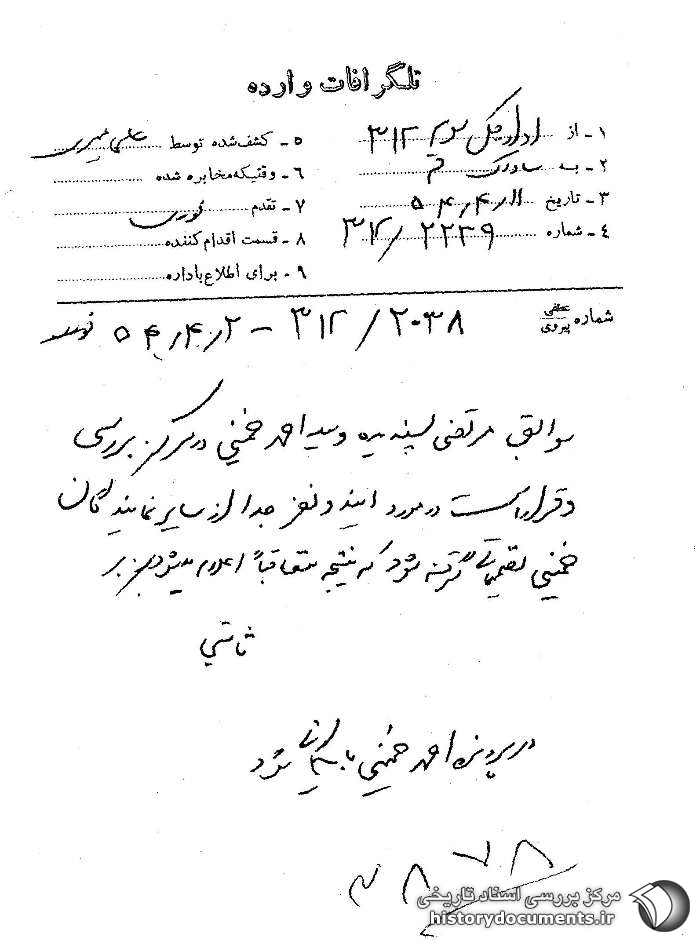 تلگرافات وارده
۱- از اداره کل سوم ۳۱۲
۲- به ساواک قم
۳- تاریخ ۵۴٫۴٫۱۱
۴- شماره ۳۱۲/۲۲۳۹
۵- کشف‌شده توسط
۶- وقتیکه مخابره شده
۷- تقدم فوری
۸- قسمت اقدام‌کننده
۹- برای اطلاع باداره
شماره عطفی پیروی ۳۱۲/۲۰۳۸ - ۵۴٫۴٫۲
سوابق مرتضی پسندیده و سید احمد خمینی در مرکز بررسی
و قرار است در مورد این دو نفر جدا از سایر نمایندگان
خمینی تصمیماتی گرفته شود که نتیجه متعاقباً اعلام میشود
ثابتی
در پرونده احمد خمینی بایگانی شود
مرکز بررسی اسناد تاریخی
historydocuments.ir